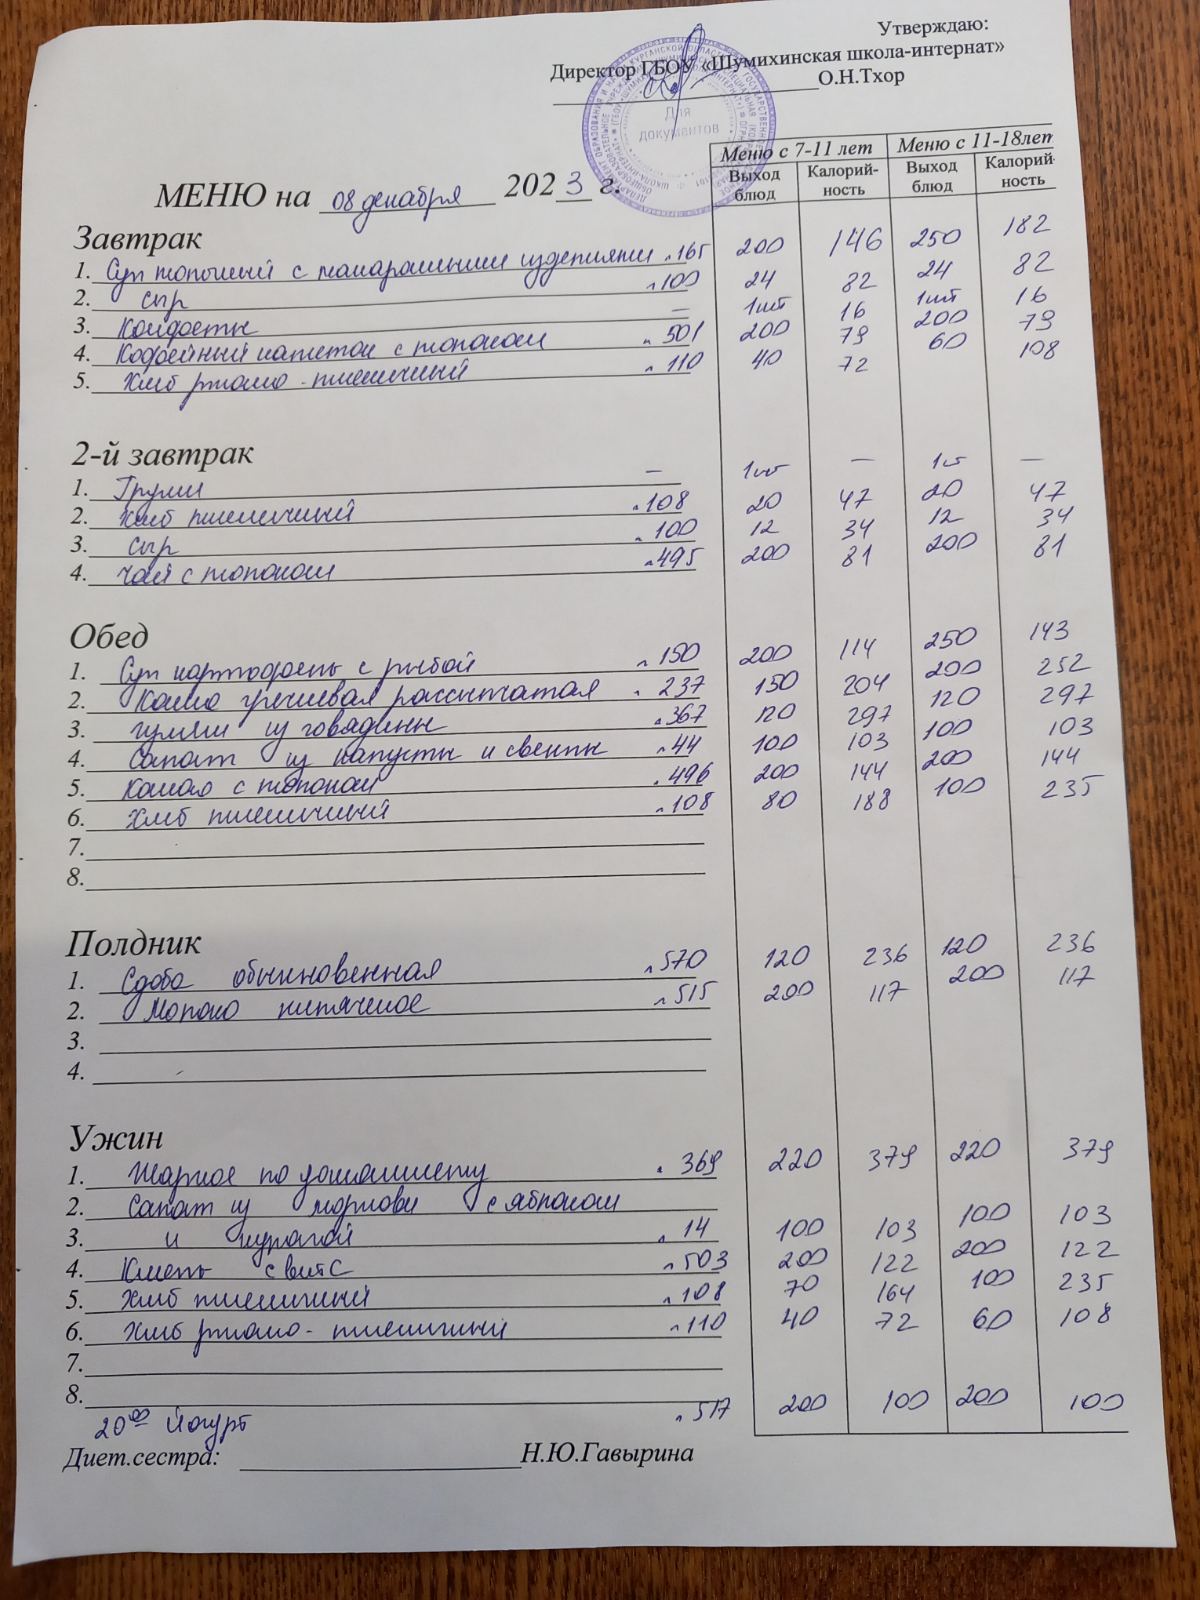 Утверждаю:
Директор ГБОУ «Шумихинская школа-интернат»
О.Н.Тхор
Для документов
Меню с 7-11 лет Меню с 11-18лет
Выход блюд Калорий-ность Выход блюд Калорий-ность
МЕНЮ на 08 декабря 2023 г.
Завтрак
1. Суп молочный с макаронными изделиями №165 200 146 250 182
2. Сыр №100 24 82 24 82
3. Конфеты — 1шт 16 1шт 16
4. Кофейный напиток с молоком №501 200 79 200 79
5. Хлеб ржано-пшеничный №110 40 72 60 108
2-й завтрак
1. Груши — 1шт — 1шт —
2. Хлеб пшеничный №108 20 47 20 47
3. Сыр №100 12 34 12 34
4. Чай с молоком №495 200 81 200 81
Обед
1. Суп картофель с рыбой №150 200 114 250 143
2. Каша гречневая рассыпчатая №237 150 204 200 252
3. гуляш из говядины №367 120 297 120 297
4. Салат из капусты и свеклы №44 100 103 100 103
5. Какао с молоком №496 200 144 200 144
6. Хлеб пшеничный №108 80 188 100 235
7.
8.
Полдник
1. Сдоба обыкновенная №570 120 236 120 236
2. Молоко кипяченое №515 200 117 200 117
3.
4.
Ужин
1. Жаркое по домашнему №369 220 379 220 379
2. Салат из моркови с яблоком
3. и курагой №14 100 103 100 103
4. Кисель с витС №503 200 122 200 122
5. Хлеб пшеничный №108 70 164 100 235
6. Хлеб ржано-пшеничный №110 40 72 60 108
7.
8.
20⁰⁰ Йогурт №517 200 100 200 100
Диет.сестра: Н.Ю.Гавырина